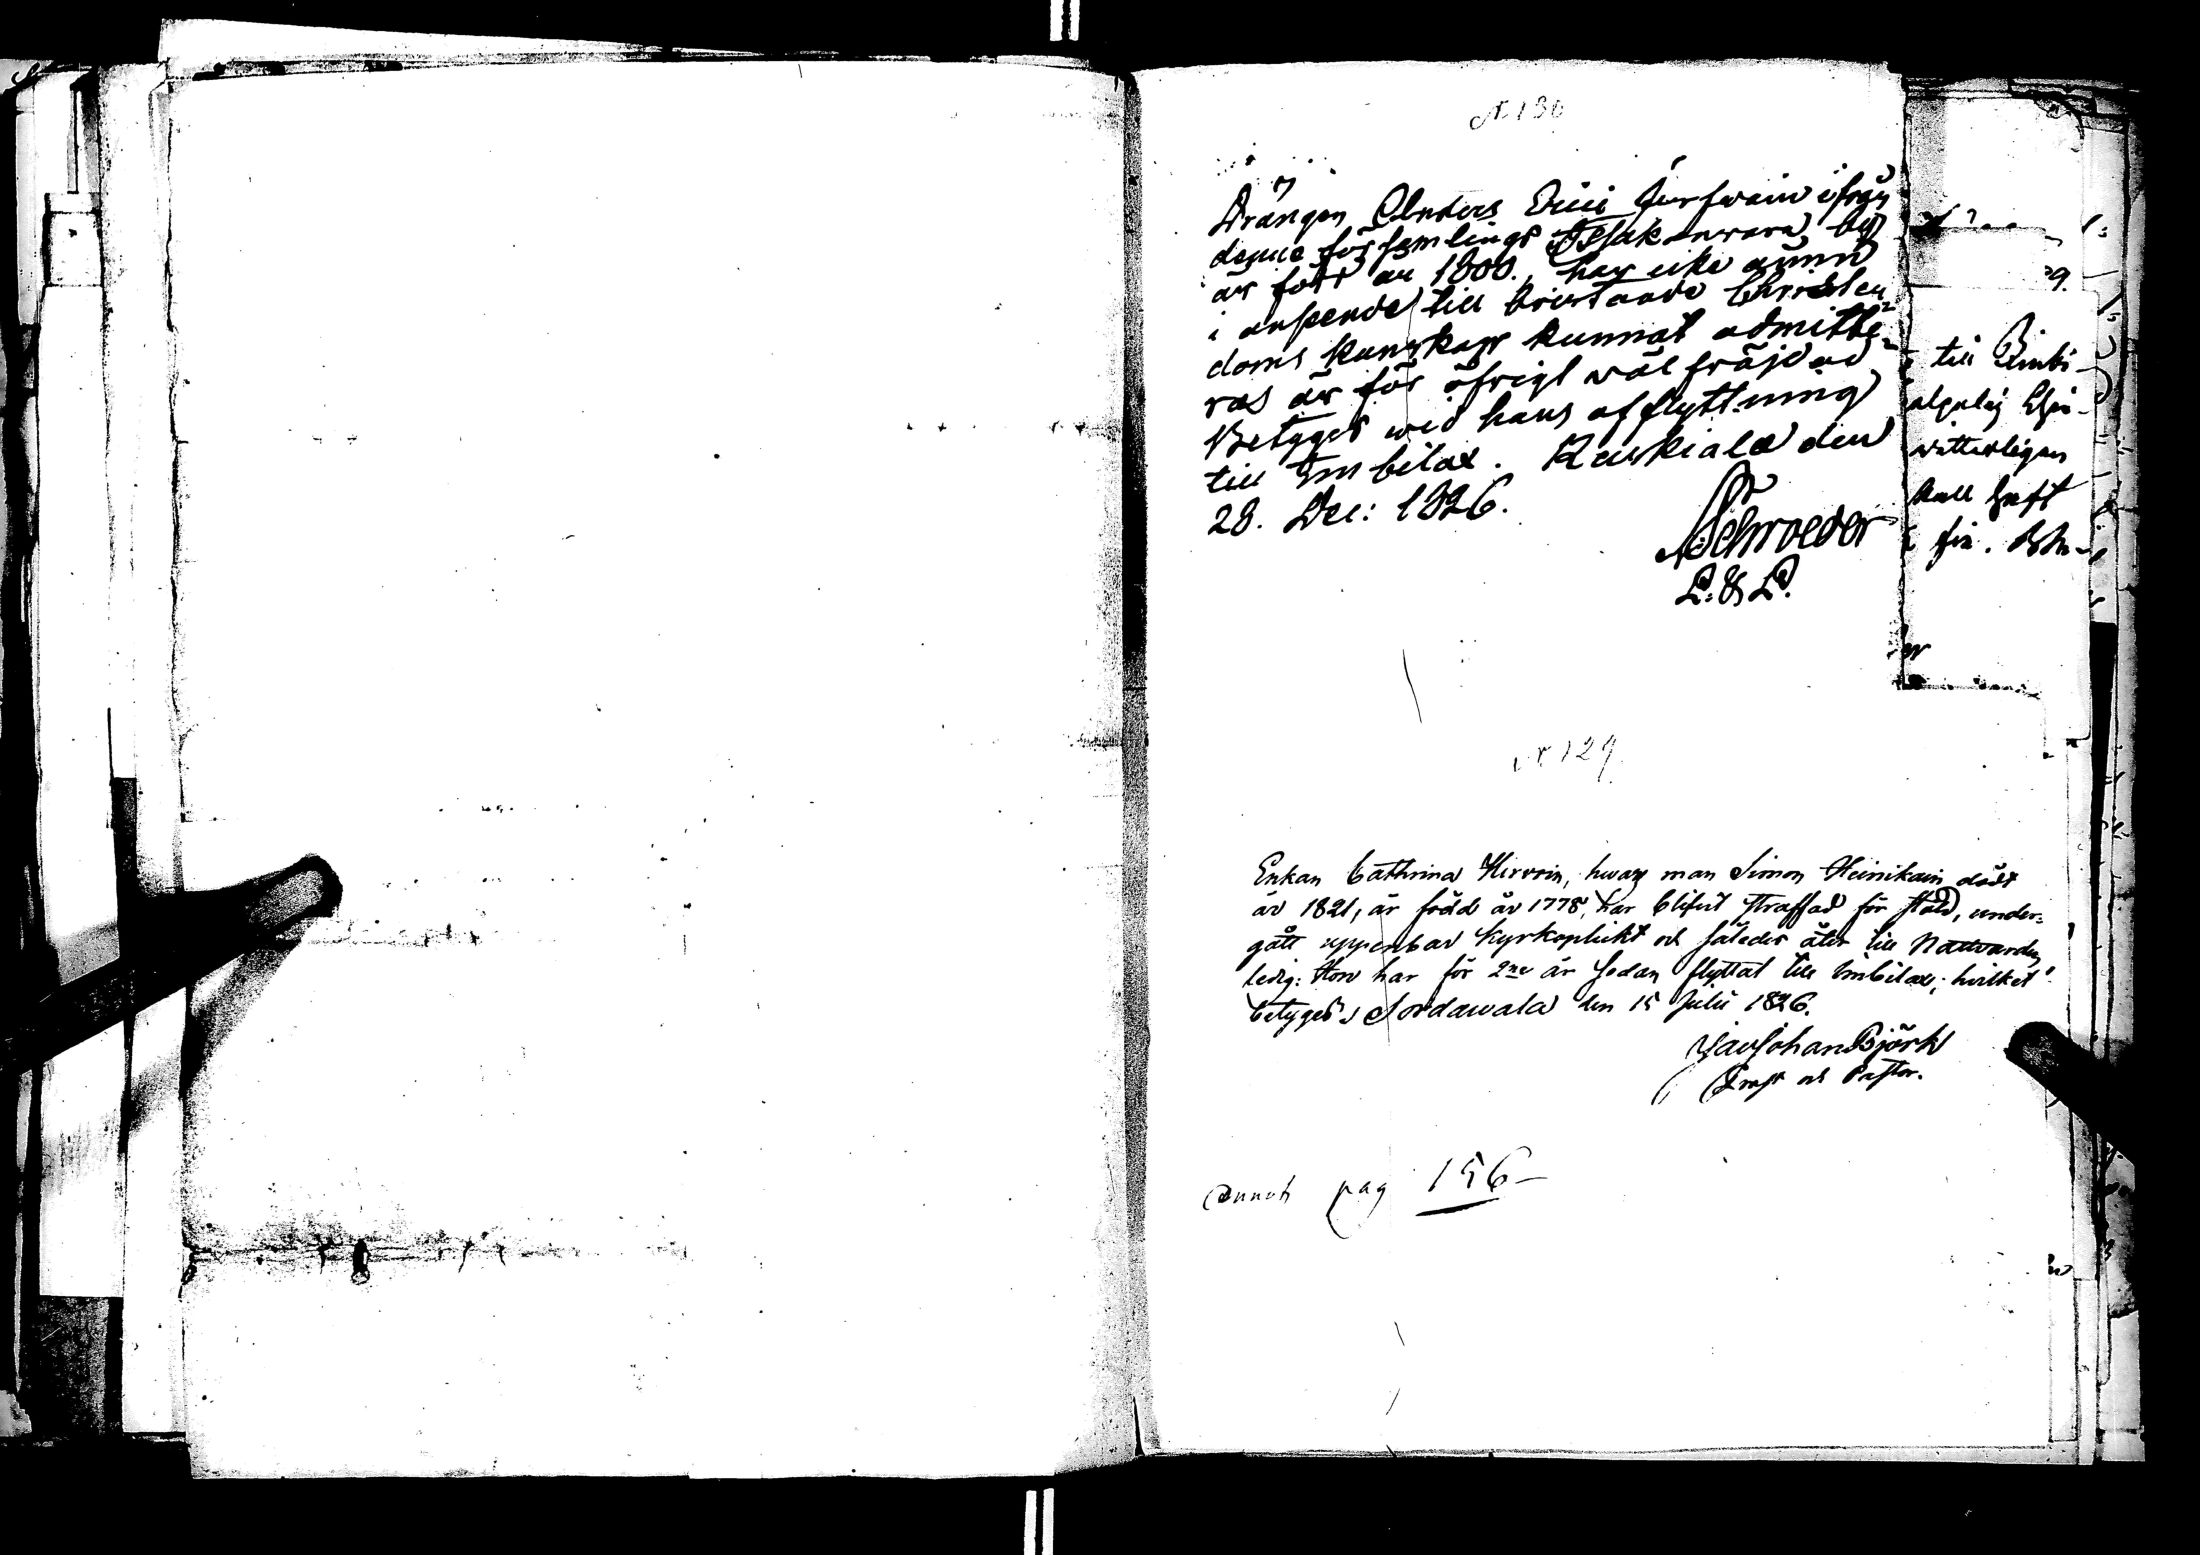 N 130
Drängen Anders Ifrån
denne församlings by
är född år 1800., har icke ännu
i anseende till bristande Christen=
doms kunskap kunnat admitte=
ras är för öfrigt wäl fräjdad
Betygas wid hans afflyttning
till Imbilax. Ruskiala den
28. Dec: 1826.
Schroeder
N 129
Enkan Cathrina Hirvoin, hwars man Simon Heinikain dödt
år 1821, är född år 1778, har blifvit straffad för stöld, under=
gått uppenbar kyrkoplikt och således åter till Nattvarden
ledig: Hon har för 2ne år sedan flyttat till Imbilax; hvilket
betygas, Sordawala den 15 Julii 1826.
Johan Björk
Prost och Pastor.
Annot pag 156
till Imbi-
witterligen
haft